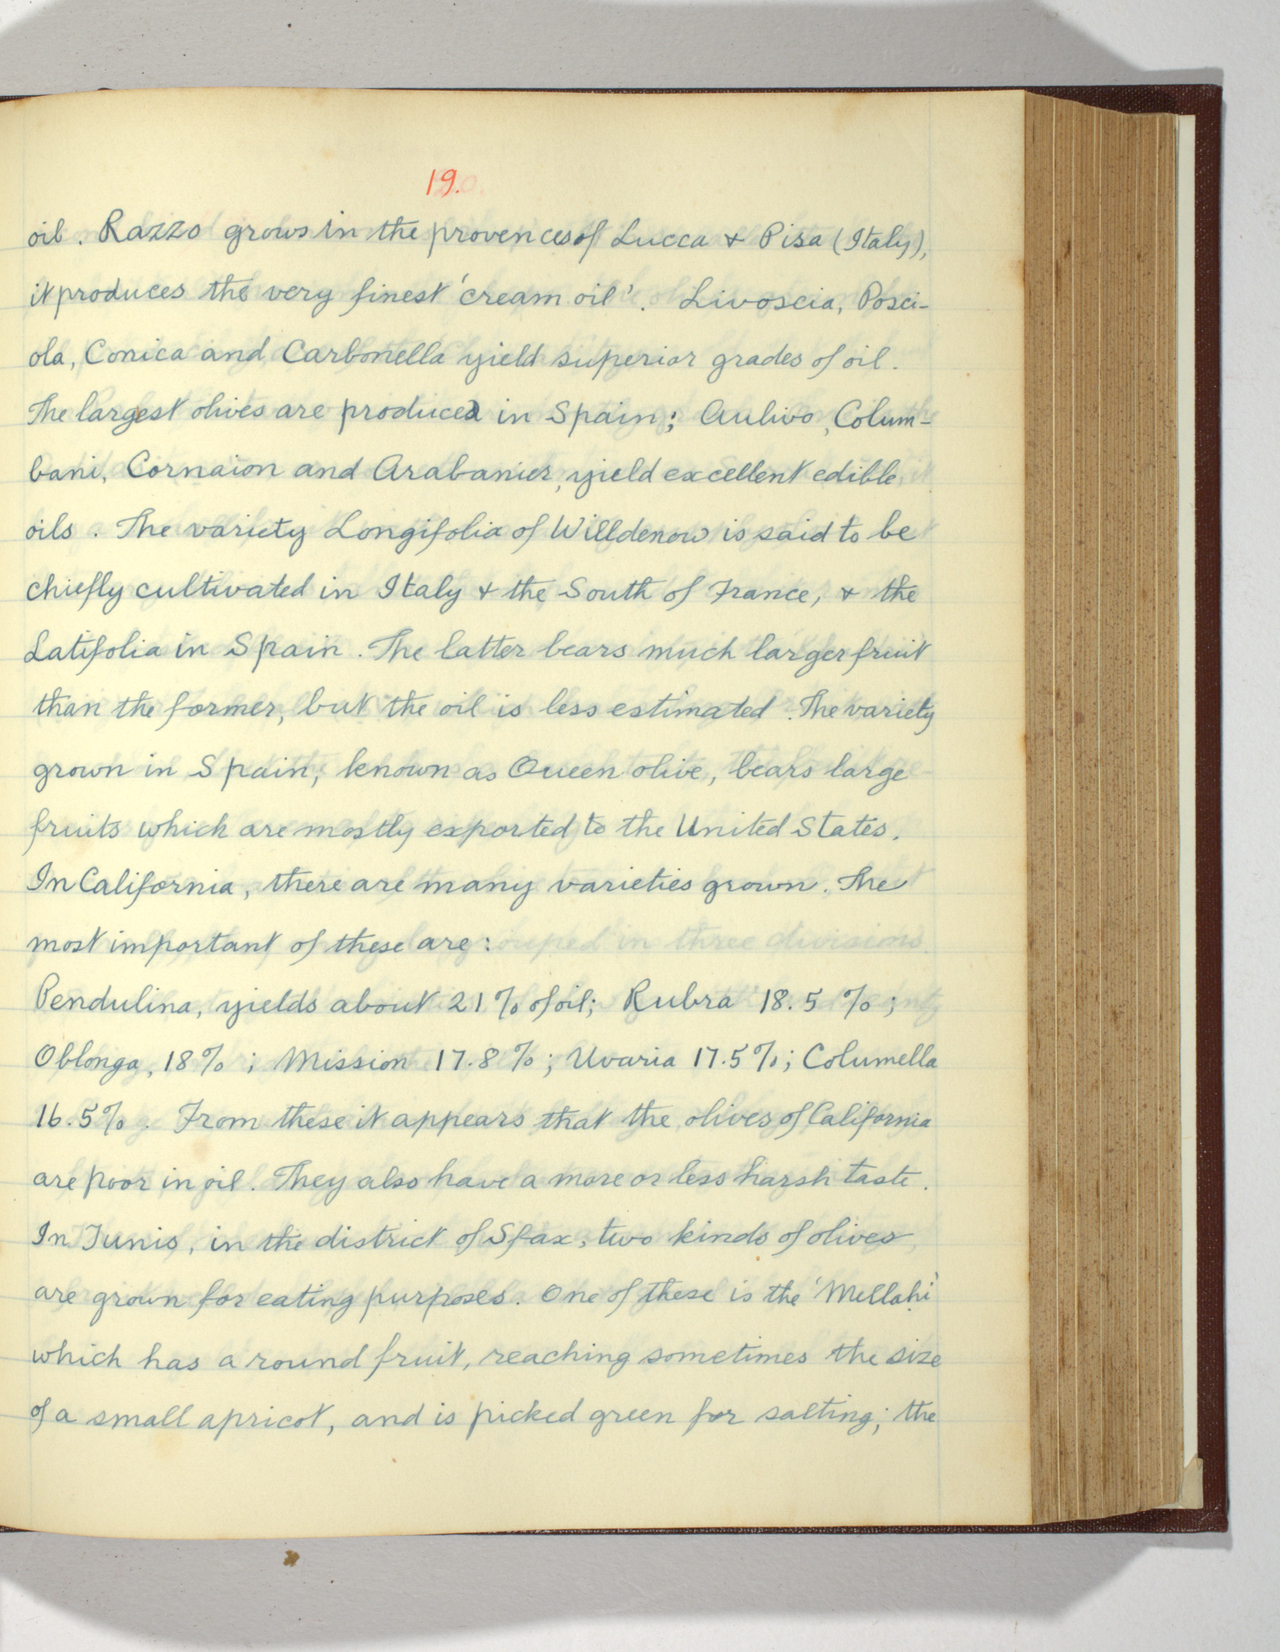 19.
oil. Razzo grows in the provences of Lucca & Pisa (Italy),
it produces the very finest 'cream oil'. Livoscia, Posci-
ola, Conica and Carbonella yield superior grades of oil.
The largest olives are produced in Spain; Aulivo, Colum-
bani, Cornaion and Arabanier, yield excellent edible
oils. The variety Longifolia of Willdenow is said to be
chiefly cultivated in Italy & the South of France, & the
Latifolia in Spain. The latter bears much larger fruit
than the former, but the oil is less estimated. The variety
grown in Spain, known as Queen olive, bears large
fruits which are mostly exported to the United States.
In California, there are many varieties grown. The
most important of these are:
Pendulina, yields about 21% of oil; Rubra 18.5%;
Oblonga, 18%; Mission 17.8%; Uvaria 17.5%; Columella
16.5%. From these it appears that the olives of California
are poor in oil. They also have a more or less harsh taste.
In Tunis, in the district of Sfax, two kinds of olives
are grown for eating purposes. One of these is the 'Mellahi'
which has a round fruit, reaching sometimes the size
of a small apricot, and is picked green for salting; the